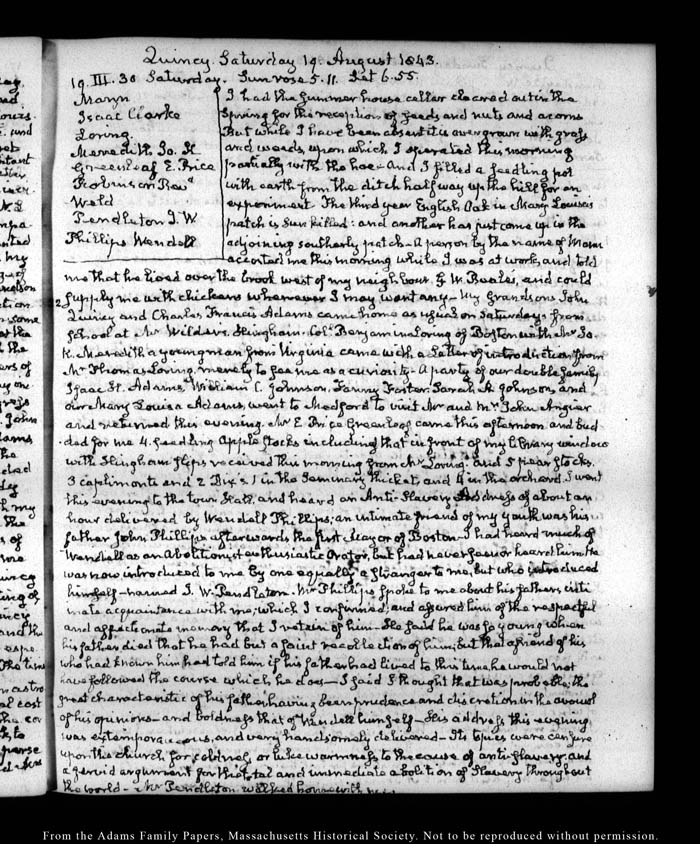 Quincy Saturday 19 August 1843.
19. III. 30 Saturday. Sun rose 5.11. Set 6.55.
Isaac Clarke
Loring.
Meredith Jo. K
Greenleaf E. Price
Robinson
Weld
Pendleton J. W
Phillips Wendell
I had the Summer house cellar cleared out in the
Spring for the reception of seeds and nuts and acorns
But while I have been absent it is overgrown with grass
and weeds, upon which I operated this morning
partially with the hoe – And I filled a seedling pot
with earth from the ditch half way up the hill for an
experiment. The third year English Oak in Mary Louisa's
patch is Sun killed – and another has just come up in the
adjoining southerly patch – A person by the name of
accosted me this morning while I was at work, and told
me that he lived over the brook west of my neighbour G W. Beales, and could
supply me with chickens whenever I may want any – My Grandsons John
Quincy and Charles Francis Adams came home as usual on Saturdays from
school at Mr Wilder's Hingham. Coll. Benjamin Loring of Boston with Mr Jo.
K. Meredith a young man from Virginia came with a Letter of introduction from
Mr Thomas Loring, merely to see me as a curiosity – A party of our double family
Isaac H. Adams, William C. Johnson, Fanny Foster, Sarah A. Johnson, and
our Mary Louisa Adams, went to Medford to visit Mr and Mrs John Angier
and returned this evening. Mr E. Price Greenleaf came this afternoon and bud
ded for me 4. seedling Apple stocks including that in front of my library windows
with Hingham slips received this morning from Mr Loring. and 5 pear stocks.
3 capiumonts and 2 Dix's 1 in the Seminary thicket, and 4 in the orchard. I went
this evening to the town Hall, and heard an Anti-Slavery Address of about an
hour delivered by Wendell Phillips; an intimate friend of my youth was his
father John Phillips afterwards the first Mayor of Boston – I had heard much of
Wendell as an Abolitionist enthusiastic Orator, but had never seen or heard him. He
was now introduced to me by one equally a stranger to me, but who introduced
himself – named J. W. Pendleton. Mr Phillips spoke to me about his father's inti
mate acquaintance with me, which I confirmed; and assured him of the respectful
and affectionate memory that I retain of him. He said he was so young when
his father died that he had but a faint recollection of him, but that a friend of his
who had known him had told him if his father had lived to this time, he would not
have followed the course which he does – I said I thought that was probable; the
great characteristic of his father having been prudence and discretion in the avowal
of his opinions – and boldness that of Wendell himself – His address this evening
was extemporaneous, and very handsomely delivered – Its topics were censure
upon the church for coldness, or lukewarmness to the cause of anti-slavery; and
a fervid argument for the total and immediate abolition of Slavery throughout
the world – Mr Pendleton walked home with me.
From the Adams Family Papers, Massachusetts Historical Society. Not to be reproduced without permission.